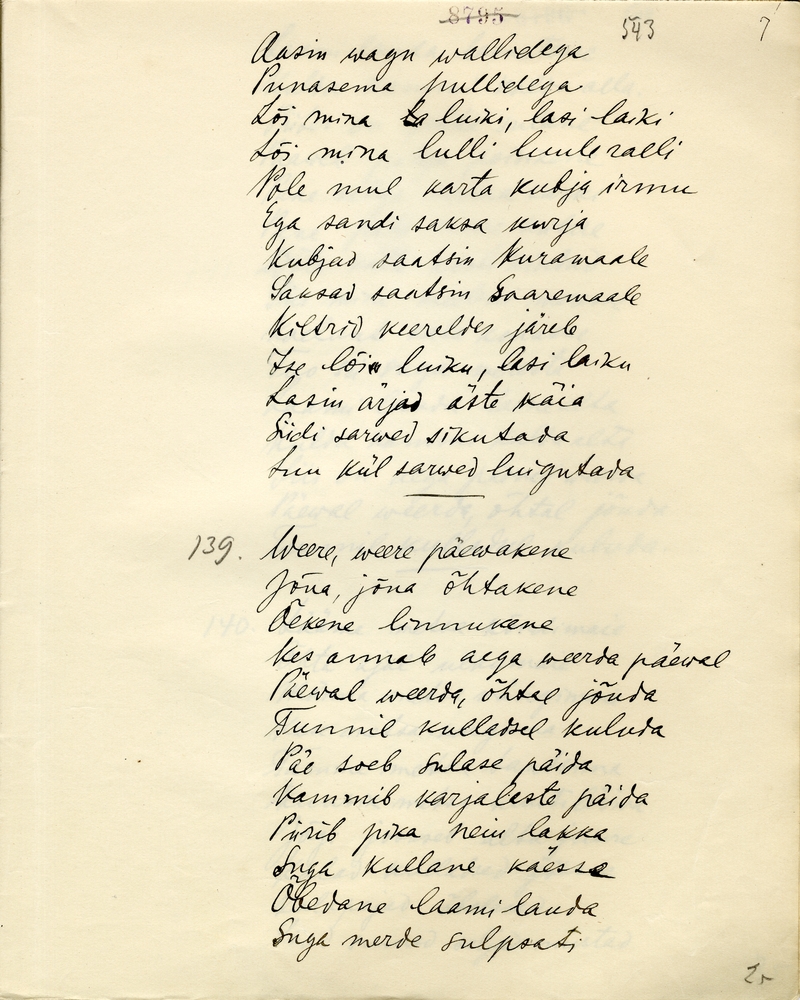 8795
543
7
Aasin wagu wallidega
Punasema pullidega
Lõi mina luiki, lasi laiki
Lõi mina lulli luule ralli
Pole mul karta kubja irmu
Ega sandi saksa kurja
Kubjad saatsin Kuramaale
Saksad saatsin Saaremaale
Kiltrid keereldes järele
Ise lõin luiku, lasi laiku
Lasin ärjad äste käia
Siidi sarwed sikutada
Luu kül sarwed luigutada
139. Weere, weere päewakene
Jõua, jõua õhtakene
Õekene linnukene
Kes annab aega weerda päewal
Päewal weerda, õhtal jõuda
Tunnil kulladsel kuluda
Päe soeb sulase päida
Kammib karjalaste päida
Piirib pika neiu lakka
Suga kullane käessa
Õbedane laami lauda
Suga merde sulpsati